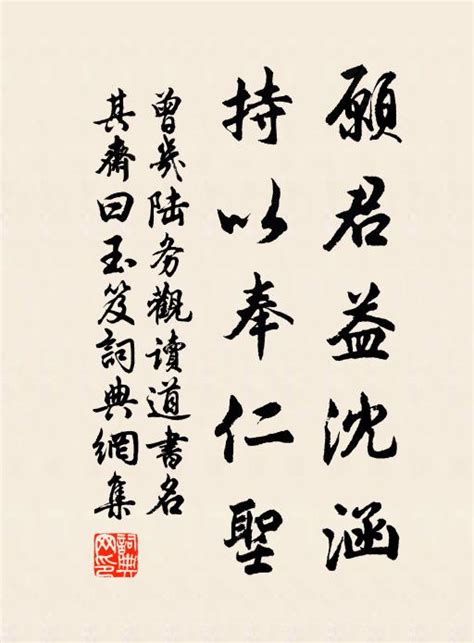 願君益沈涵
持以奉仁聖
曾幾陸務觀讀道書名
其齋曰玉笈詞典網集
詞典网印